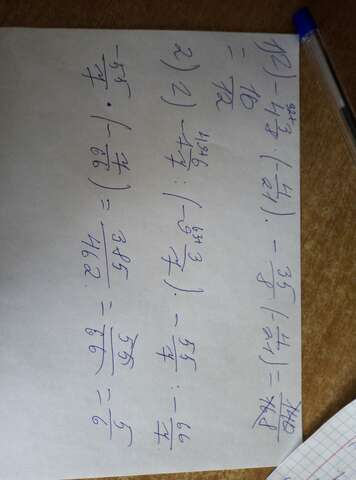 1)2) -4 3/8 · (-4/21). -35/8 (-4/21) = 140/168
= 10/12
2) 2) -7 6/7 : (-9 3/7). -55/7 : -66/7
-55/7 · (-7/66) = 385/462 = 55/66 = 5/6